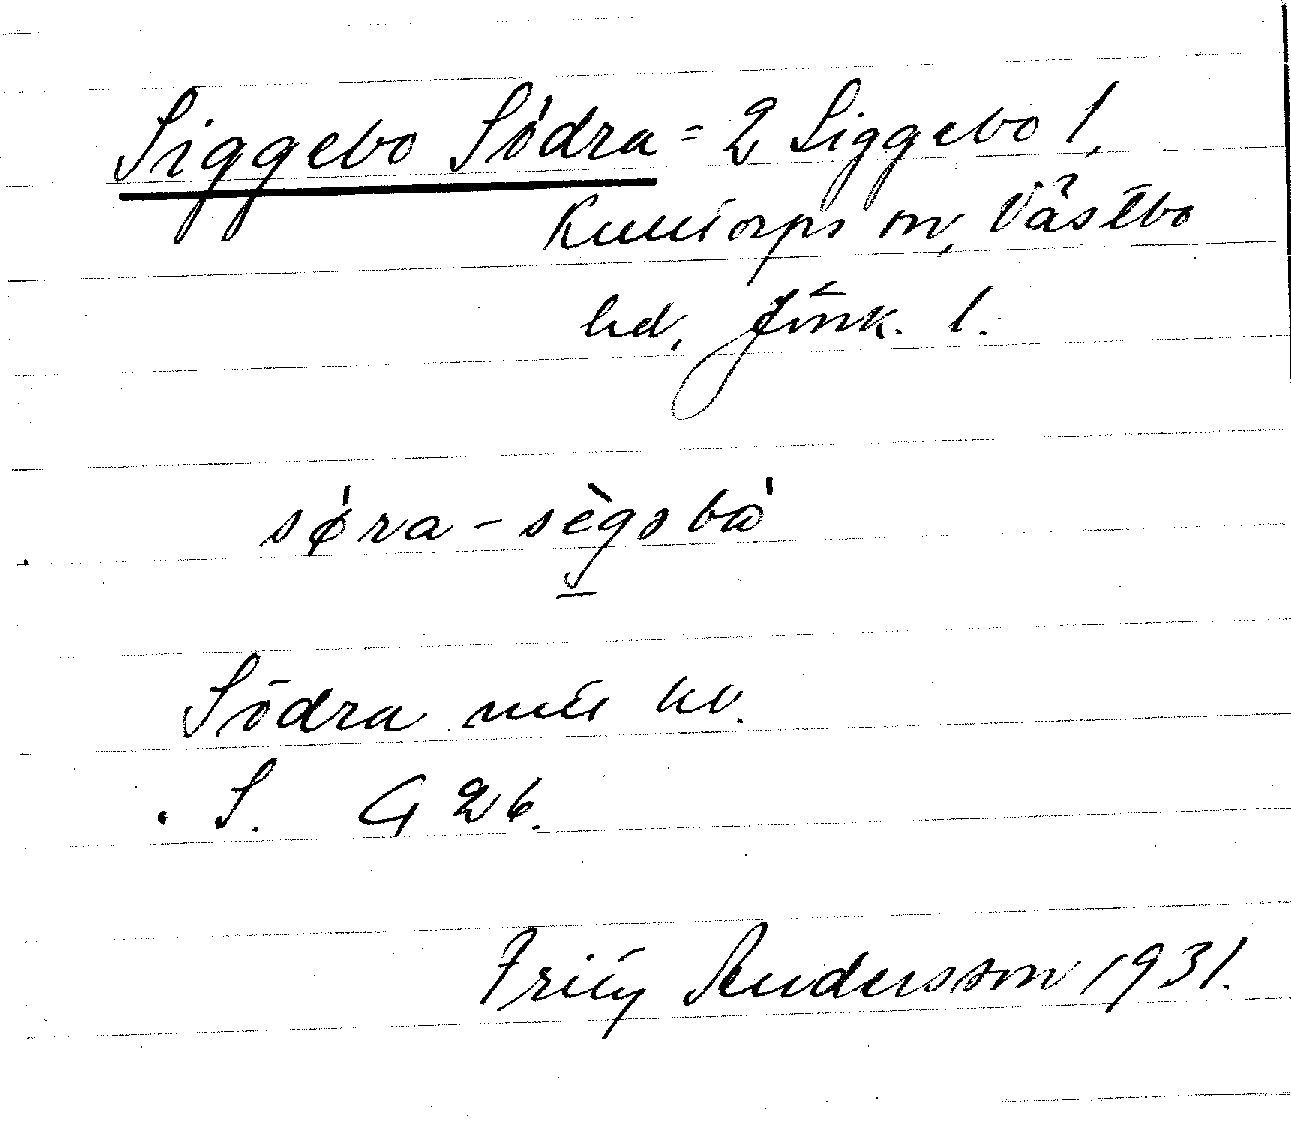 Siggebo Södra = 2 Siggebo 1,
Kulltorps sn, Västbo
hd, Jönk. l.
søra - sègobò
Södra mtl hd.
S. G 26.
Frity Andersson 1931.